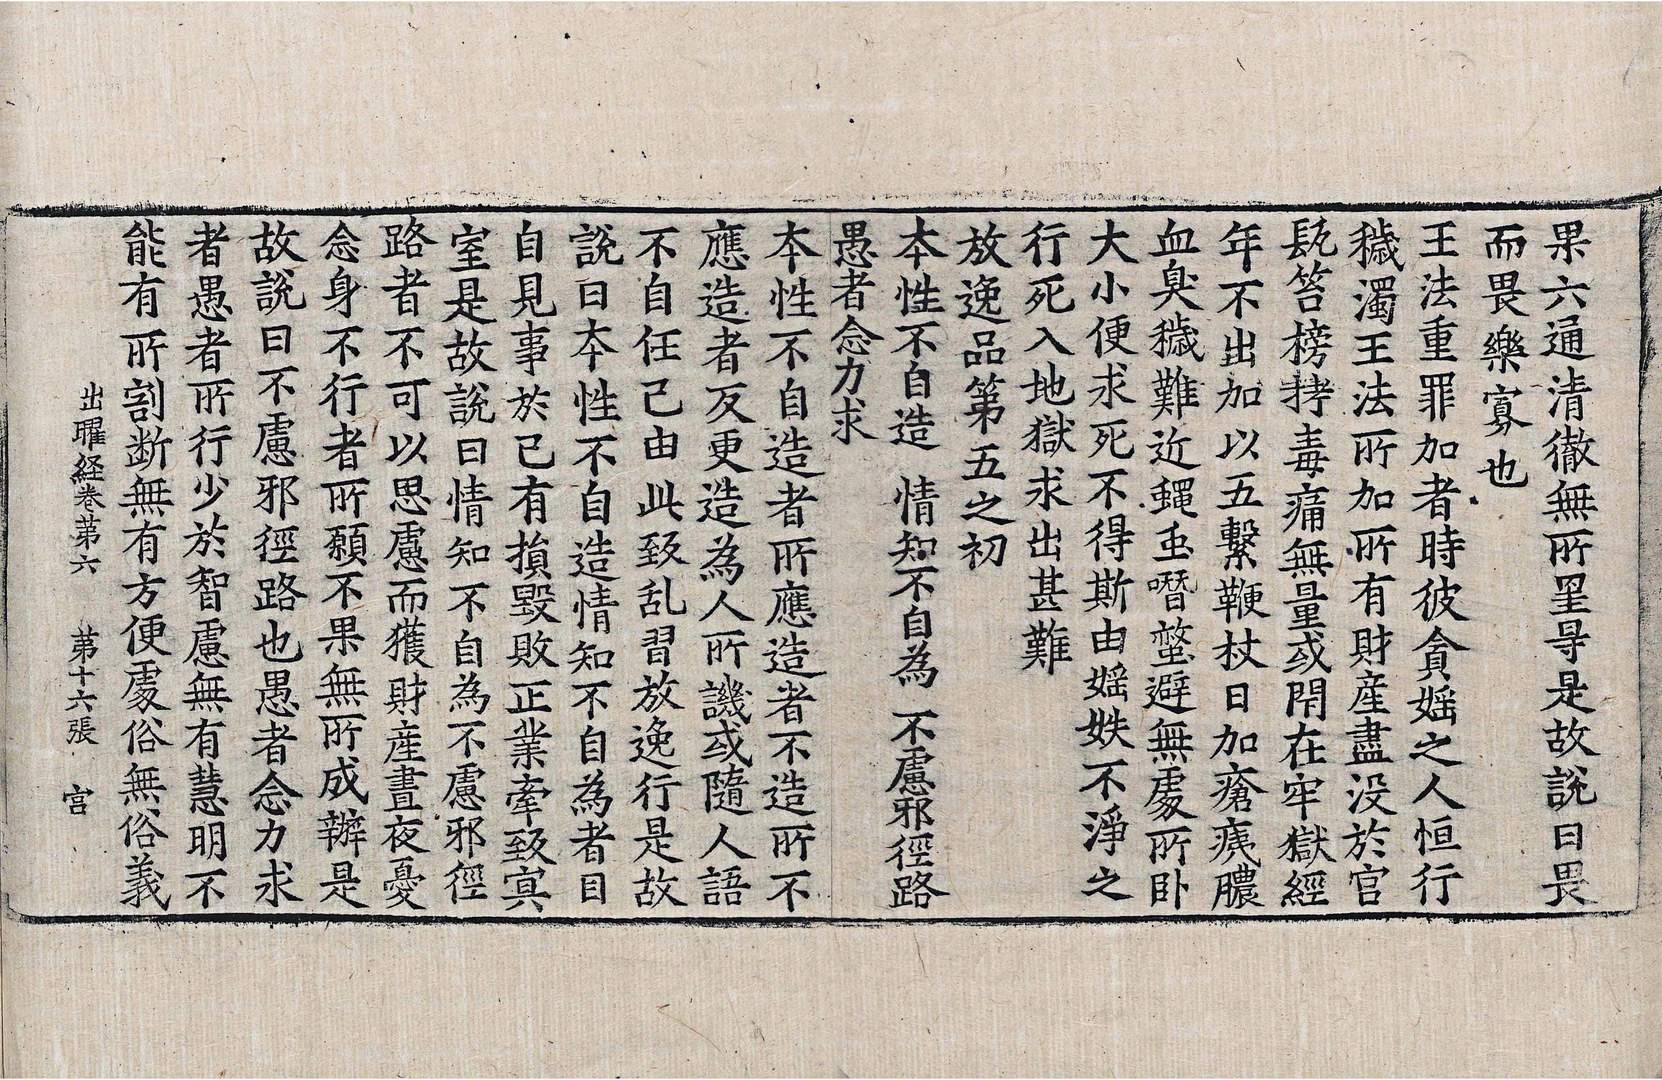 果六通清徹無所罣㝵是故說曰畏
而畏樂寡也
王法重罪加者時彼貪婬之人恒行
穢濁王法所加所有財產盡没於官
髡笞榜拷毒痛無量或閇在牢獄經
年不出加以五繫鞭杖日加瘡痍膿
血臭穢難近蠅䖝噆螫避無處所卧
大小便求死不得斯由婬妷不淨之
行死入地獄求出甚難
放逸品第五之初
本性不自造 情知不自為 不慮邪徑路
愚者念力求
本性不自造者所應造者不造所不
應造者反更造為人所譏或隨人語
不自任己由此致乱習放逸行是故
說曰本性不自造情知不自為者目
自見事於已有損毀敗正業牽致㝠
室是故說曰情知不自為不慮邪徑
路者不可以思慮而獲財產晝夜憂
念身不行者所願不果無所成辦是
故說曰不慮邪徑路也愚者念力求
者愚者所行少於智慮無有慧明不
能有所割断無有方便處俗無俗義
出曜経卷第六 第十六張 宫